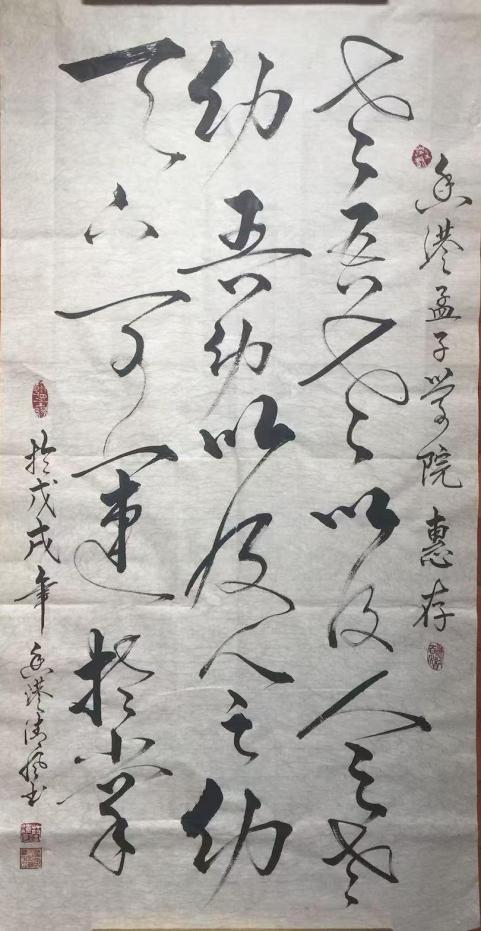 香港孟子学院 惠存
老吾老以及人之老
幼吾幼以及人之幼
天下可运於掌
於戊戌年 香港清风书